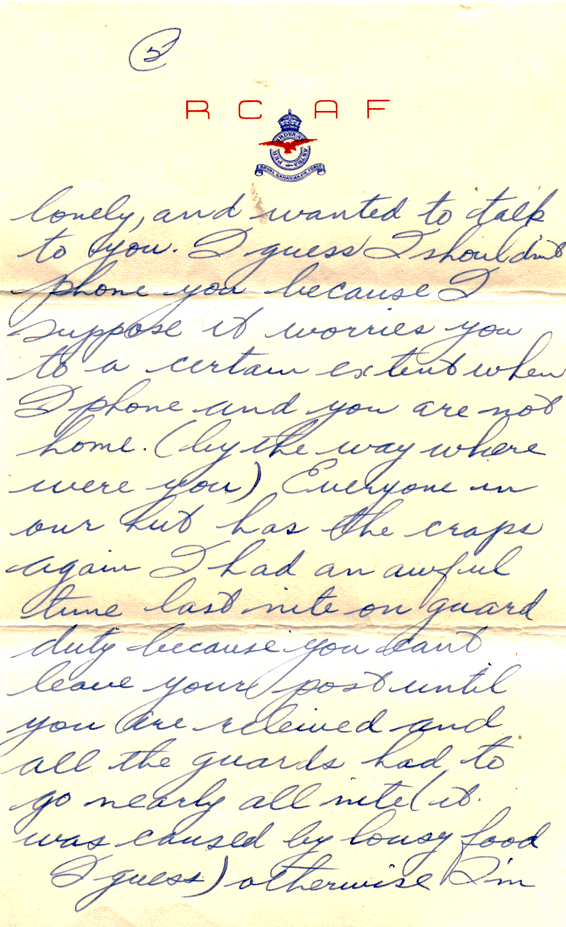 5
R C A F
ROYAL CANADIAN AIR FORCE
lonely, and wanted to talk
to you. I guess I should'nt
phone you because I
suppose it worries you
to a certain extent when
I phone and you are not
home. (by the way where
were you) Everyone in
our hut has the craps
again I had an awful
time last nite on guard
duty because you can't
leave your post until
you are releived and
all the guards had to
go nearly all nite (it
was caused by lousy food
I guess) otherwise I'm